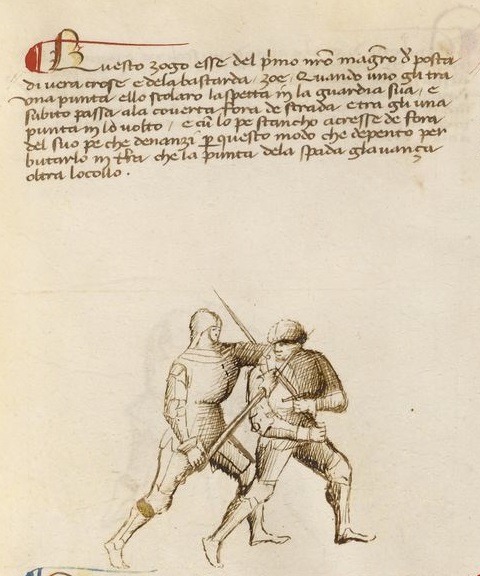 Questo zogo esse del p͂mo nr͂o magr͂o d͂ posta
di vera crose e dela bastarda, zoe, Quando uno gli tra
una punta ello scolaro laspetta in la guardia sua, e
subito passa ala coverta fora de strada e tra gli una
punta in lo volto, e cu͂ lo pe stancho acresse de fora
del suo pe che denanzi p questo modo che depento per
butarlo in t͂ra che la punta dela spada gl avanza
oltra lo collo.